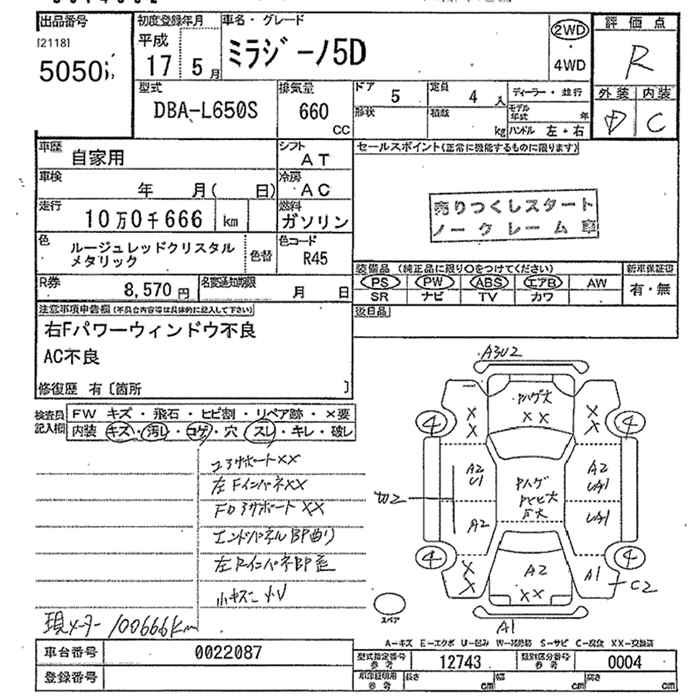 出品番号
[2118]
5050
初度登録年月
平成
17 5月
車名・グレード
ミラジーノ5D
2WD
・
4WD
評価点
R
外装 内装
D C
型式
DBA-L650S
排気量
660
CC
ドア
5
定員
4人
形状
積載
kg
ディーラー・並行
モデル年式 年
ハンドル 左・右
車歴
自家用
シフト
AT
車検
年 月( 日)
冷房
AC
走行
10万0千666 km
燃料
ガソリン
色
ルージュレッドクリスタル
メタリック
色替
色コード
R45
R券
8,570円
名変通知期限
月 日
セールスポイント(正常に機能するものに限ります)
売りつくしスタート
ノークレーム車
装備品 (純正品に限り○をつけてください)
PS PW ABS エアB AW
SR ナビ TV カワ
新車保証書
有・無
後日品
注意事項申告欄(不具合内容等は具体的に記入して下さい)
右Fパワーウィンドウ不良
AC不良
修復歴 有〔箇所 〕
検査員
記入欄
FW キズ・飛石・ヒビ割・リペア跡・×要
内装 キズ・汚レ・コゲ・穴・スレ・キレ・破レ
コアサポートXX
左FインパネXX
FDクサポートXX
エンドパネルBP曲り
左RインパネBP歪
現メーター100666km
A3U2
Pハゲ大
XX
XX
XX
4
4
A2
U1
Pハゲ
A2
UA1
A2
UA1
4
4
XX
A2
XX
A1
C2
A1
スペア
A-キズ E-エクボ U-凹み S-サビ C-腐食 XX-交換済
車台番号
0022087
登録番号
型式指定番号
参考
12743
類別区分番号
参考
0004
参考
長さ cm
幅 cm
高さ cm